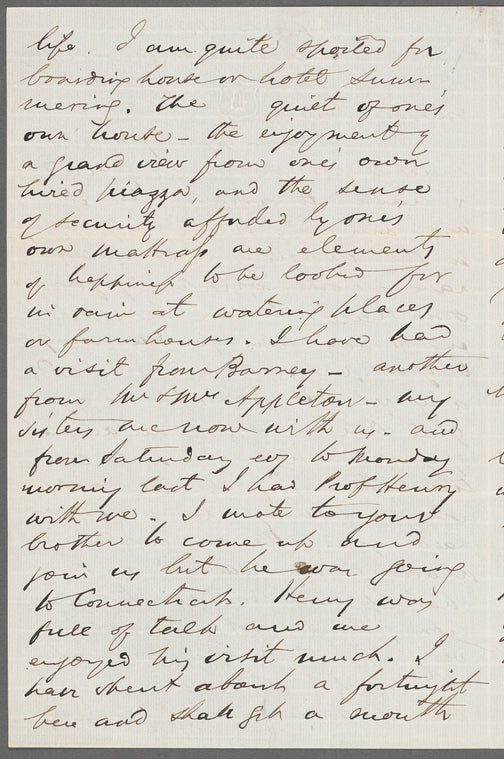 life. I am quite spoiled for
boarding house or hotel summ
mering. The quiet of one's
own house - the enjoyment of
a grand view from one's own
hired piazza, and the sense
of security afforded by one's
own mattrass are elements
of happiness to be looked for
in vain at watering places
or farm houses. I have had
a visit from Barney - another
from Mr & Mrs Appleton - my
sisters are now with us - and
from Saturday evg to Monday
morning last I had Prof Henry
with me. I wrote to your
brother to come up and
join us but he was going
to Connecticut. Henry was
full of talk and we
enjoyed his visit much. I
have spent about a fortnight
here and shall get a month